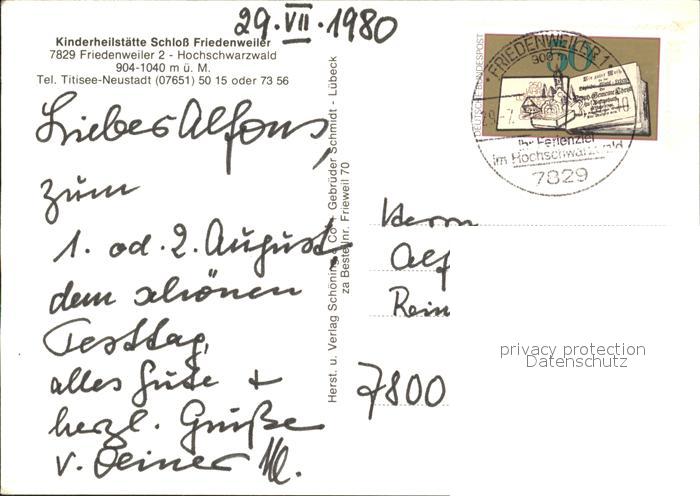 29.VII.1980
Kinderheilstätte Schloß Friedenweiler
7829 Friedenweiler 2 - Hochschwarzwald
904-1040 m ü. M.
Tel. Titisee-Neustadt (07651) 50 15 oder 73 56
Lieber Alfons,
zum
1. od. 2. August,
dem schönen
Festtag,
alles Gute +
herzl. Grüße
v. Deiner M.
Herst. u. Verlag Schöning & Co + Gebrüder Schmidt - Lübeck
za Bestellnr. Frieweil 70
DEUTSCHE BUNDESPOST
50
FRIEDENWEILER 1
900 m
Ihr Ferienziel
im Hochschwarzwald
7829
Herrn
Alf
Rein
7800
privacy protection
Datenschutz